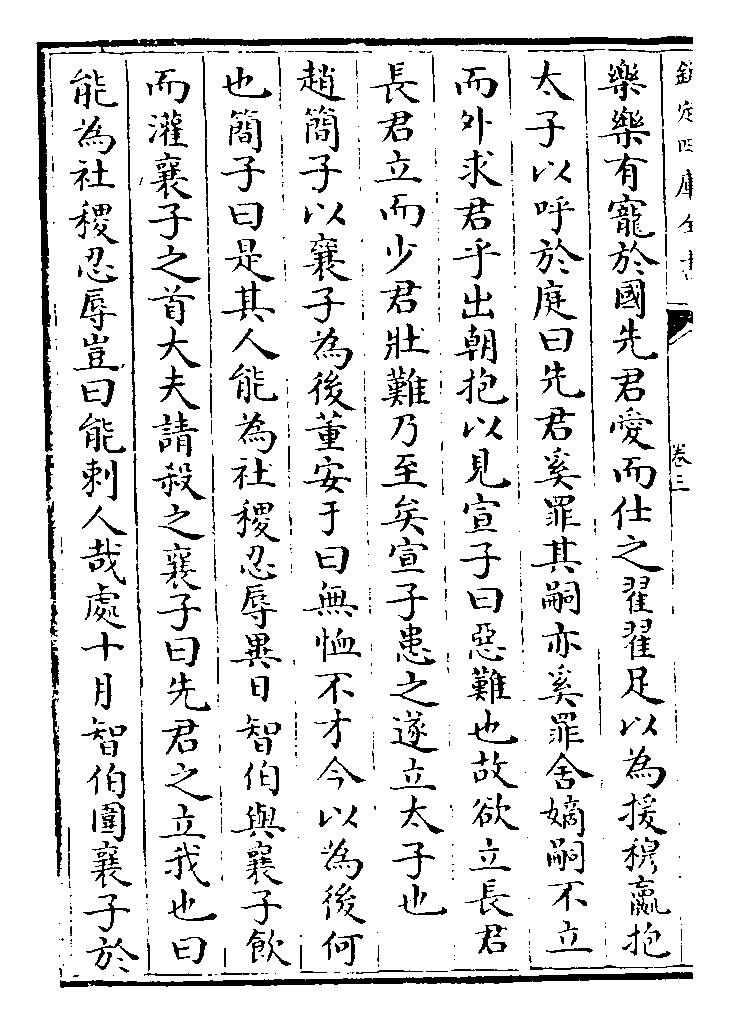 欽定四庫全書
卷三
樂樂有寵於國先君愛而仕之翟翟足以為援穆嬴抱
太子以呼於庭曰先君奚罪其嗣亦奚罪舍嫡嗣不立
而外求君乎出朝抱以見宣子曰惡難也故欲立長君
長君立而少君壯難乃至矣宣子患之遂立太子也
趙簡子以襄子為後董安于曰無恤不才今以為後何
也簡子曰是其人能為社稷忍辱異日智伯與襄子飲
而灌襄子之首大夫請殺之襄子曰先君之立我也曰
能為社稷忍辱豈曰能刺人哉處十月智伯圍襄子於